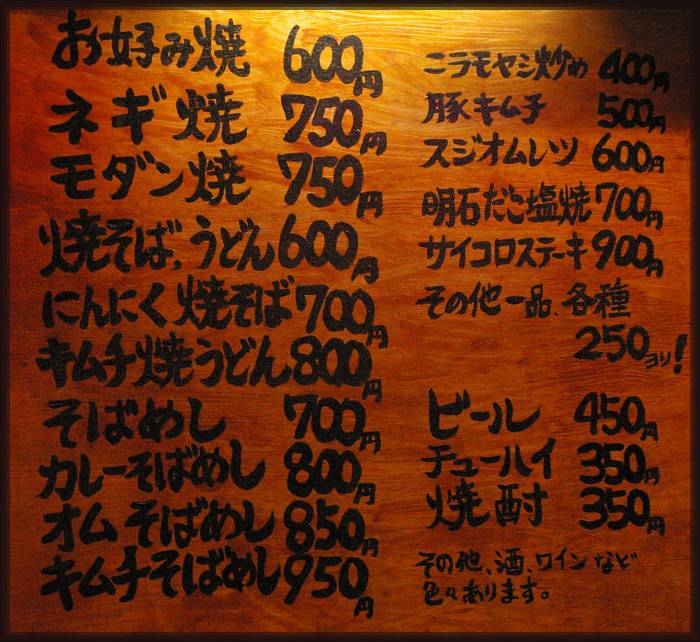 お好み焼 600円
ネギ焼 750円
モダン焼 750円
焼そば,うどん 600円
にんにく焼そば 700円
キムチ焼うどん 800円
そばめし 700円
カレーそばめし 800円
オムそばめし 850円
キムチそばめし 950円
ニラモヤシ炒め 400円
豚キムチ 500円
スジオムレツ 600円
明石だこ塩焼 700円
サイコロステーキ 900円
その他一品、各種
250ヨリ!
ビール 450円
チューハイ 350円
焼酎 350円
その他、酒、ワインなど
色々あります。